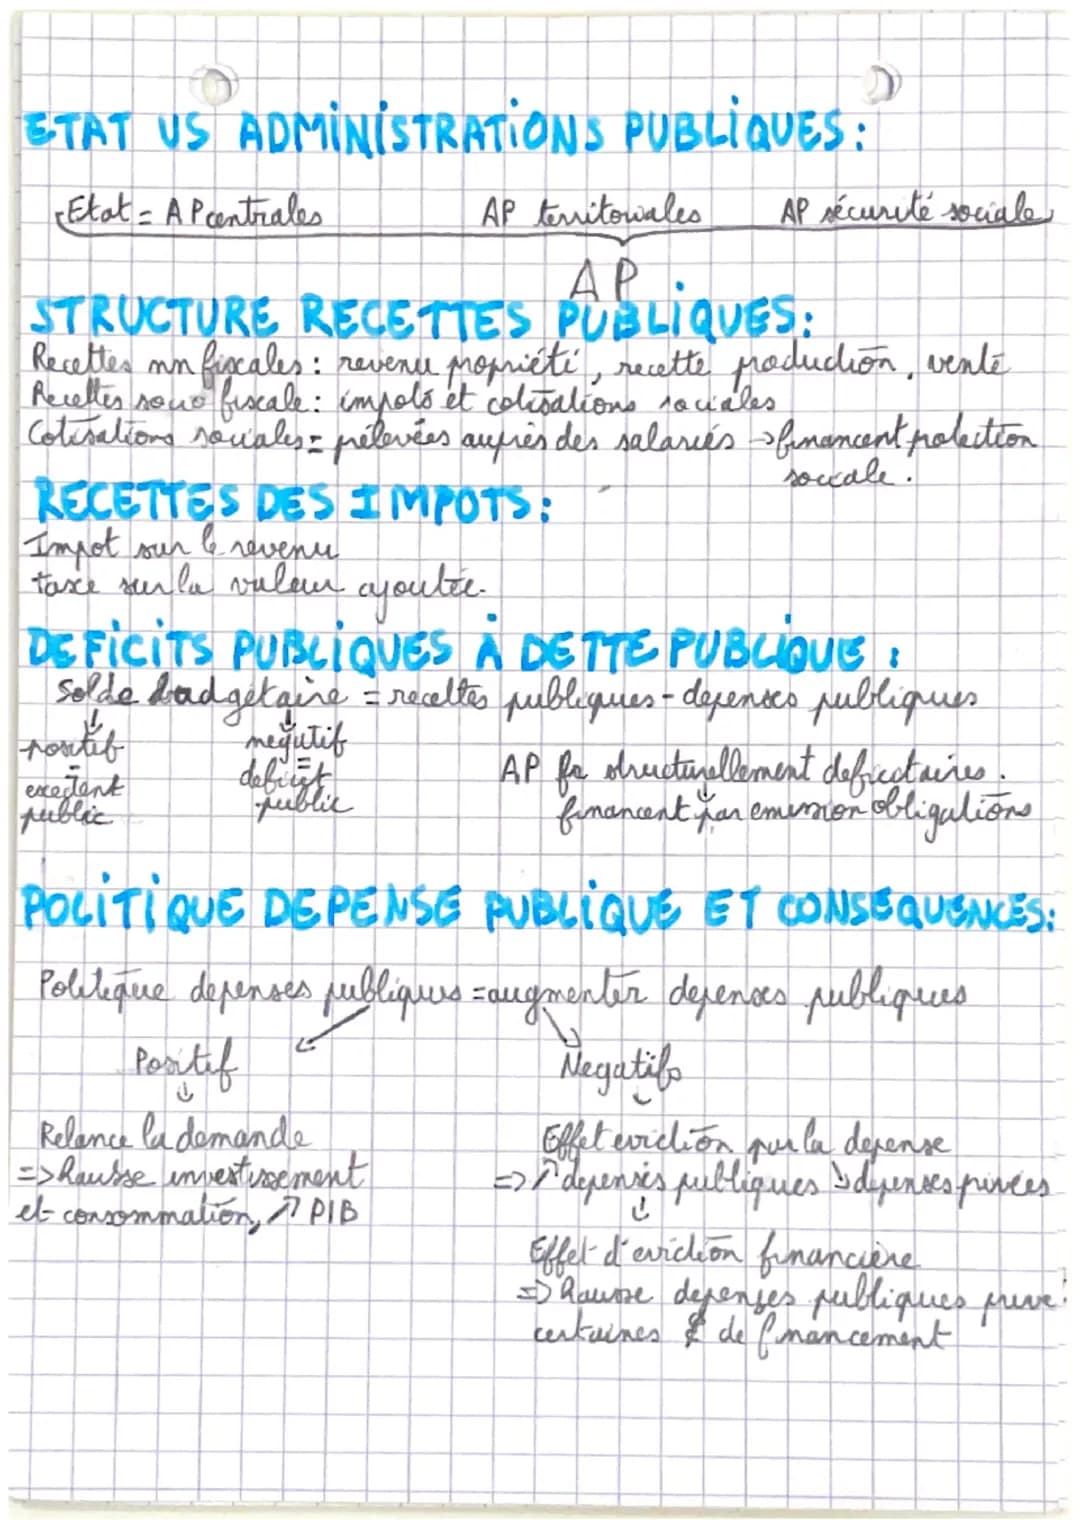 ETAT VS ADMINISTRATIONS PUBLIQUES:
Etat = AP centrales AP territoriales AP sécurité sociale
AP
STRUCTURE RECETTES PUBLIQUES:
Recettes nn fiscales: revenu propriété, recette production, vente
Recettes fiscale: impots et cotisations sociales
Cotisations sociales = prélevées auprès des salariés → financent protection
sociale.
RECETTES DES IMPOTS:
Impot sur le revenu
taxe sur la valeur ajoutée.
DEFICITS PUBLIQUES À DETTE PUBLIQUE:
Solde budgetaire = recettes publiques - depenses publiques
↓ ↓
positif negatif
= =
excedent deficit
public public
AP structurellement deficitaires.
↓
financent par emission obligations
POLITIQUE DEPENSE PUBLIQUE ET CONSEQUENCES:
Politique depenses publiques = augmenter depenses publiques
Positif Negatifs
↓ ↓
Relance la demande
=> Hausse investissement
et consommation, ↗ PIB
Effet eviction par la depense
=> ↗ depenses publiques ↘ depenses privées
↓
Effet d'eviction financière
=> Hausse depenses publiques prive
certaines de financement